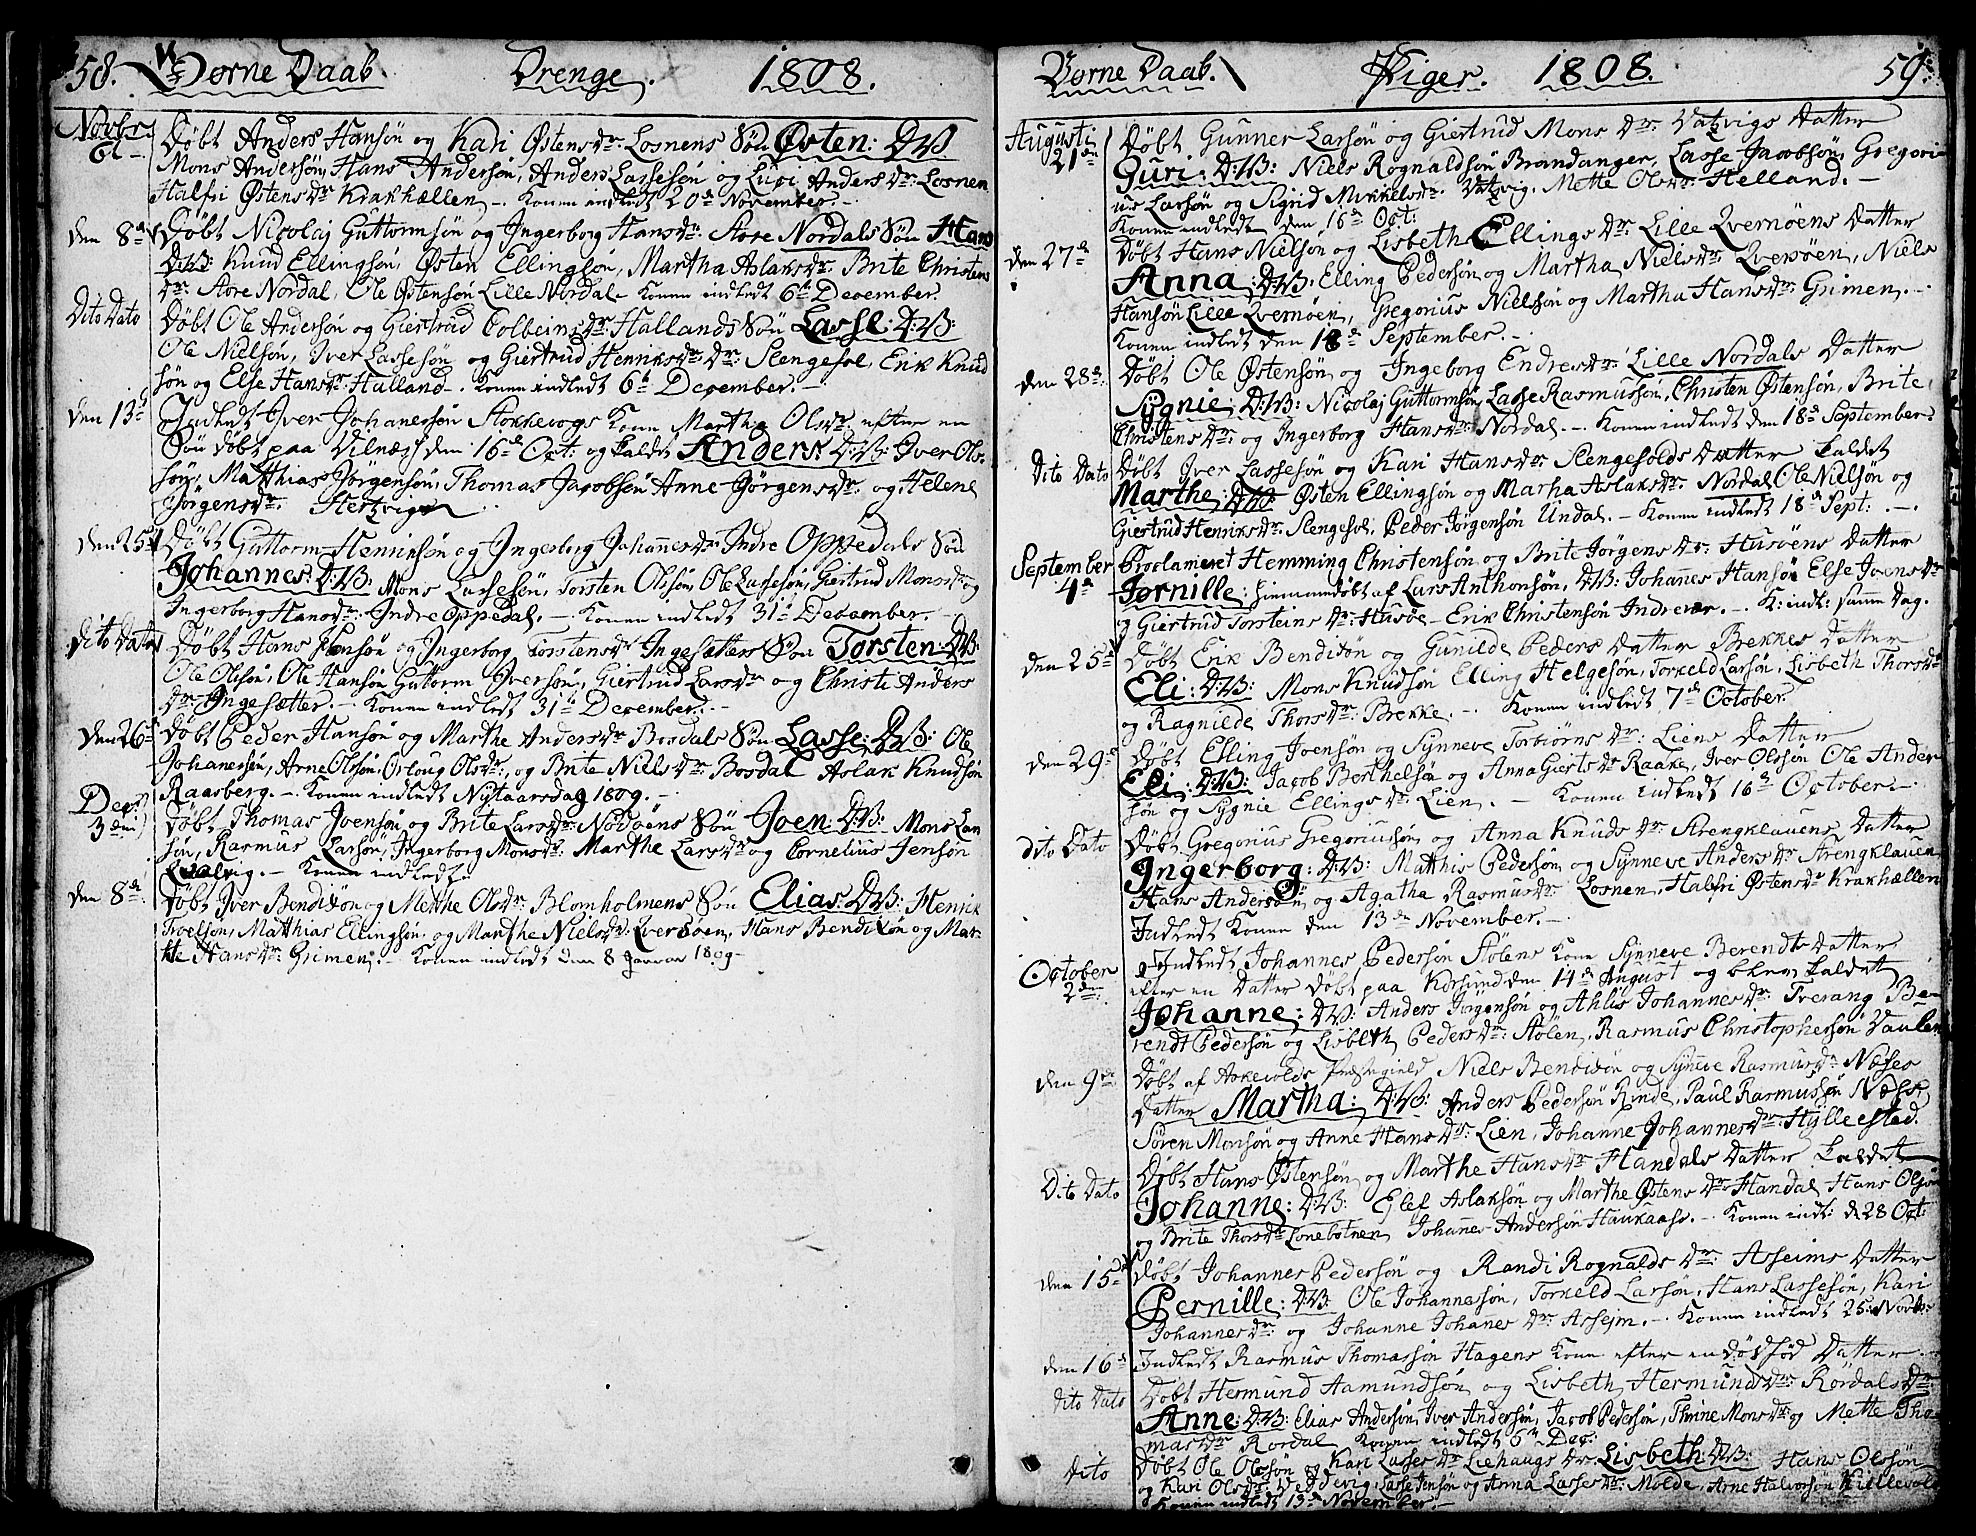 58. Børne Daab. Drenge. 1808.
Novbr. 6t Døbt Anders Hansøn og Kari Østensdr: Losnens Søn Østen: D:W:
Mons Andersøn, Hans Andersøn, Anders Lassesøn og Guri Andersdr: Losnen
Halfri Østensdr Krakhællen. - Konen indledt 20de November. -
den 8d Døbt Nicolaj Guttormsøn og Jngerborg Hansdr: Store Nordals Søn Hans
D:W: Knud Ellingsøn, Østen Ellingsøn, Martha Aslaksdr: Brite Christens
dr: Store Nordal, Ole Østensøn Lille Nordal - Konen indledt 6te December.
Dito Dato Døbt Ole Andersøn og Giertrud Colbeinsdr: Hallands Søn Lasse: D:W:
Ole Nielsøn, Jver Lassesøn og Giertrud Henriksdr: Slengesol, Erik Knud
søn og Else Hansdr: Halland - Konen indledt 6te December. -
den 13d Jndledt Jver Johanessøn Stokkevogs Kone Martha Olsdr: efter en
Søn døbt paa Vilnæss den 16de Oct: og kaldet Anders: D:W: Jver Ols-
søn, Matthias Jørgensøn, Thomas Jacobsøn Anne Gørgensdr: og Helene
Jørgensdr: Hertzvigen
den 25d Døbt Guttorm Henriksøn og Jngerborg Johannesdr: Jndre Oppedals Søn
Johannes: D:W: Mons Lassesøn, Torsten Olssøn, Ole Lassesøn, Giertrud Monsdr og
Jngerborg Hansdr: Jndre Oppedal. - Konen indledt 31te December. -
Dito Dato Døbt Hans Hansøn og Jngerborg Torstensdr Jngesætters Søn Torsten: D:W:
Ole Olssøn, Ole Hansøn Guttorm Jversøn, Giertrud Larsdr og Christi Anders
dr: Jngesætter. - Konen indledt 31te December. -
den 26d Døbt Peder Hansøn og Marthe Andersdr Bosdals Søn Lasse: D:W: Ole
Johanessøn, Arne Olssøn, Orloug Olsdr:, og Brite Nielsdr Bosdal Aslak Knudsøn
Raasberg. - Konen indledt Nytaarsdag 1809. -
Decr: 3die Døbt Thomas Joensøn og Brite Larsdr: Nødøens Søn Joen: D:W: Mons Lar
søn, Rasmus Larsøn, Jngerborg Monsdr: Marthe Larsdr og Cornelius Jensøn
- Konen indledt
den 8de Døbt Jver Bendixøn og Mette Olsdr: Blomholmens Søn Elias: D:W: Henrik
Troelsøn, Matthias Ellingsøn, og Marthe Nielsdr: Qversøen, Hans Bendixøn og Mar-
the Hansdr: Grimen. - Konen indledt den 8 Januar 1809 -
Børne Daab. Piger. 1808. 59.
Augusti 21de Døbt Gunner Larsøn og Giertrud Mons dr: Vatzvigs Datter
Guri: D:W: Niels Rognaldsøn Brandanger, Lasse Jacobsøn, Gregori
us Larsøn og Sigrid Mikkelsdr: Vatzvig. Mette Olsdr: Helland. -
Konen indledt den 16de Oct:
den 27d Døbt Hans Nielsøn og Lisbeth Ellings dr: Lille Qvernøens Datter
Anna: D:W: Elling Pedersøn og Martha Nielsdr: Qversøen, Niels
Hansøn Lille Qvernøen, Gregorius Nielsøn og Martha Hansdr: Grimen. -
Konen indledt den 18de September. -
den 28d. Døbt Ole Østensøn og Jngeborg Endresdr: Lille Nordals Datter
Sygnie: D:W: Nicolaj Guttormsøn, Lasse Rasmussøn, Christen Østensøn, Brite
Christensdr: og Jngerborg Hansdr: Nordal. - Konen indledt den 18de September
Dito Dato Døbt Jver Lassesøn og Kari Hansdr: Slengesolds Datter kaldet
Marthe: D:W: Østen Ellingsøn og Marha Aslaksdr: Nordal Ole Nielsøn og
Giertrud Henriksdr: Slengesol, Peder Jørgensøn Undal. - Konen indledt 18de Sept: -
September 4de Proclameret Hemming Christensøn og Brite Jørgens dr: Husøens Datter
Jornille: hiemmedøbt af Lars Anthonsøn, D:W: Johannes Hansøn Else Joensdr
og Giertrud Torsteins dr: Husøe - Erik Christensøn Jndrevær. - K: indl: samme Dag.
den 25d Døbt Erik Bendixøn og Gunilde Peders Datter Brekkes Datter
Eli: D:W: Mons Knudsøn Elling Helgesøn, Torkeld Larsøn, Lisbeth Thorsdr
og Ragnilde Thorsdr: Brekke. - Konen indledt 7de October.
den 29d Døbt Elling Joensøn og Synneve Torbiørns dr: Liens Datter
Eli: D:W: Jacob Berthelsøn og Anna Gierts dr Raake, Jver Olssøn Ole Ander
søn og Sygnie Ellings dr: Lien. - Konen indledt 16de October. -
Dito Dato Døbt Gregorius Gregoriussøn og Anna Knuds dr Strengklauens Datter
Jngerborg: D:W: Matthis Pedersøn og Synneve Anders dr Strengklauen
Hans Andersøn, og Agatha Rasmusdr: Losnen, Halfri Østensdr Krakhællen
Jndledt Konen den 13de November. -
October 2den Jndledt Johannes Pedersøn Stølens Kone Synneve Berendts Datter
efter en Datter døbt paa Korsund den 14de August og blev kaldet
Johanne: D:W: Anders Jørgensøn og Ahlis Johannesdr: Tresang Be-
rendt Pedersøn og Lisbeth Pedersdr: Stølen, Rasmus Christophersøn Vaulen
den 9de Døbt af Askevolds Præstegield Niels Bendixøn og Synneve Rasmusdr Næses
Datter Martha: D:W: Anders Pedersøn Rinde, Paul Rasmussøn Næss,
Søren Monsøn og Anne Hansdr: Lien, Johanne Johannesdr: Hyllestad.
Dito Dato Døbt Hans Østensøn og Marthe Hansdr Handals Datter kaldet
Johanne: D:W: Elef Aslaksøn og Marthe Østens dr Handal Hans Olssøn
og Brite Thorsdr Lonebotnen Johannes Andersøn Haukaass. - Konen indl: d 28 Oct:
den 15d Døbt Johannes Pedersøn og Randi Rognalds dr: Asseims Datter
Pernille: D:W: Ole Johannessøn, Torkeld Larsøn, Hans Lassesøn, Kari
Johannesdr: og Johanne Johanes dr: Assejm. - Konen indledt 25 Novbr:
den 16d Jndledt Rasmus Thomassøn Hagens Kone efter en dødfød Datter
Dito Dato Døbt Hermund Aamundsøn og Lisbeth Hermundsdr: Rørdals dr:
Anne: D:W: Elias Andersøn, Jver Andersøn, Jacob Pedersøn, Thrine Monsdr og Mette Tho
masdr Rørdal Konen indledt 6te Dec:
Dito Døbt Ole Olssøn og Kari Lassesdr Liehaugs dr Lisbeth: D:W: Hans Olssøn
og Kari Olsdr: Veddevig, Lasse Jensøn og Anna Lassesdr: Molde, Arne Halvorsøn Killevold
Konen indledt 13de November -